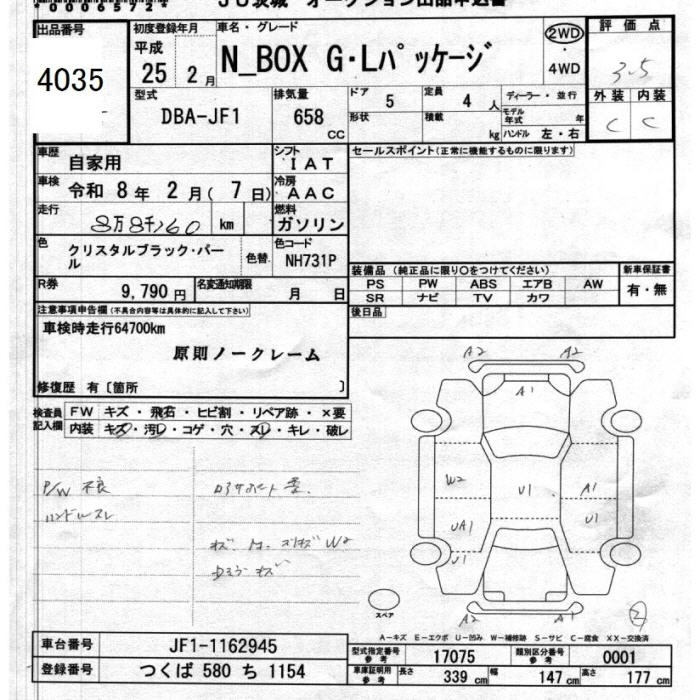 00065724
JU茨城 オークション出品申込書
出品番号
4035
初度登録年月
平成
25 2月
車名・グレード
N_BOX G・Lパッケージ
2WD
・
4WD
評価点
3.5
型式
DBA-JF1
排気量
658
CC
ドア
5
形状
定員
4 人
積載
kg
ディーラー・並行
モデル年式 年
ハンドル 左・右
外装 内装
C C
車歴
自家用
シフト
IAT
車検
令和 8年 2月( 7日)
冷房
AAC
走行
8万8千260 km
燃料
ガソリン
色
クリスタルブラック・パール
色替
色コード
NH731P
R券
9,790円
名変通知期限
月 日
セールスポイント(正常に機能するものに限ります)
装備品(純正品に限り○をつけてください)
PS PW ABS エアB AW
SR ナビ TV カワ
新車保証書
有・無
後日品
注意事項申告欄(不具合内容等は具体的に記入して下さい)
車検時走行64700km
原則ノークレーム
修復歴 有〔箇所 〕
検査員記入欄
FW キズ・飛石・ヒビ割・リペア跡・×要
内装 キズ・汚レ・コゲ・穴・スレ・キレ・破レ
P/W 不良
ハンドルスレ
A2 A2
A1
W2
U1
A1
U1
UA1
U1
A2 A2
スペア
2
A-キズ E-エクボ U-凹み W-補修跡 S-サビ C-腐食 XX-交換済
車台番号
JF1-1162945
登録番号
つくば 580 ち 1154
型式指定番号
参考
17075
類別区分番号
参考
0001
車庫証明用
参考
長さ
339 cm
幅
147 cm
高さ
177 cm